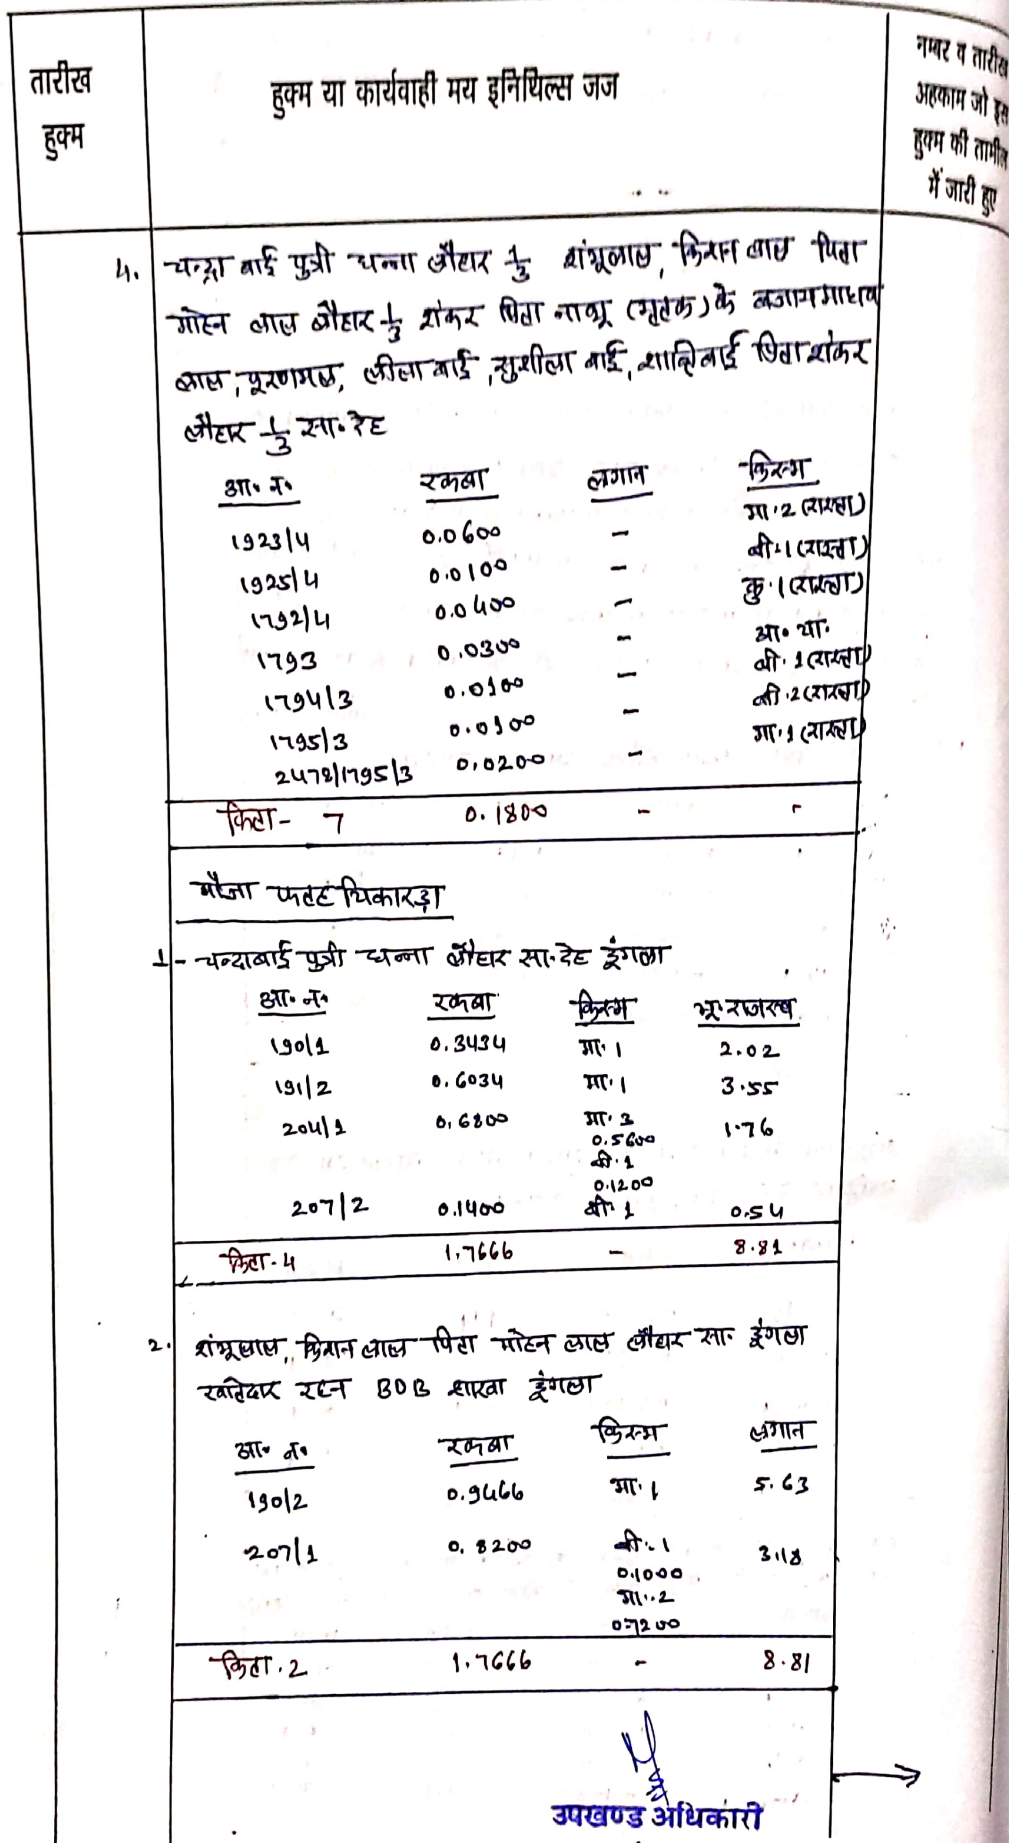 तारीख
हुक्म
हुक्म या कार्यवाही मय इनिथिल्स जज
नम्बर व तारीख
अहकाम जो इस
हुक्म की तामील
में जारी हुए
4. चन्द्रा बाई पुत्री धन्ना लौहार 1/3 शंभूलाल, किशन लाल पिता
मोहन लाल लौहार 1/3 शंकर पिता नाथू (मृतक) के बजाय माधव
लाल, पूरणमल, लीला बाई, सुशीला बाई, शान्तिबाई पिता शंकर
लौहार 1/3 सा० देह
आ० न० रकबा लगान किस्म
1923/4 0.0600 - मा.2 (रास्ता)
1925/4 0.0100 - बी.1 (रास्ता)
1792/4 0.0400 - कु.1 (रास्ता)
1793 0.0300 - आ० चा.
1794/3 0.0100 - बी. 1 (रास्ता)
1795/3 0.0100 - बी.2 (रास्ता)
2472/1795/3 0.0200 - मा.1 (रास्ता)
किता- 7 0.1800 - -
मौजा फतह चिकारड़ा
1- चन्दाबाई पुत्री धन्ना लौहार सा. देह डूंगला
आ० न० रकबा किस्म भू-राजस्व
190/1 0.3434 मा.1 2.02
191/2 0.6034 मा.1 3.55
204/1 0.6800 मा. 3 1.76
0.5600
बी.1
0.1200
207/2 0.1400 बी. 1 0.54
किता-4 1.7666 - 8.81
2. शंभूलाल, किशन लाल पिता मोहन लाल लौहार सा. डूंगला
खातेदार रहन BOB शाखा डूंगला
आ० न० रकबा किस्म लगान
190/2 0.9466 मा.1 5.63
207/1 0.8200 बी.1 3.18
0.1000
मा..2
0.7200
किता.2 1.7666 - 8.81
उपखण्ड अधिकारी